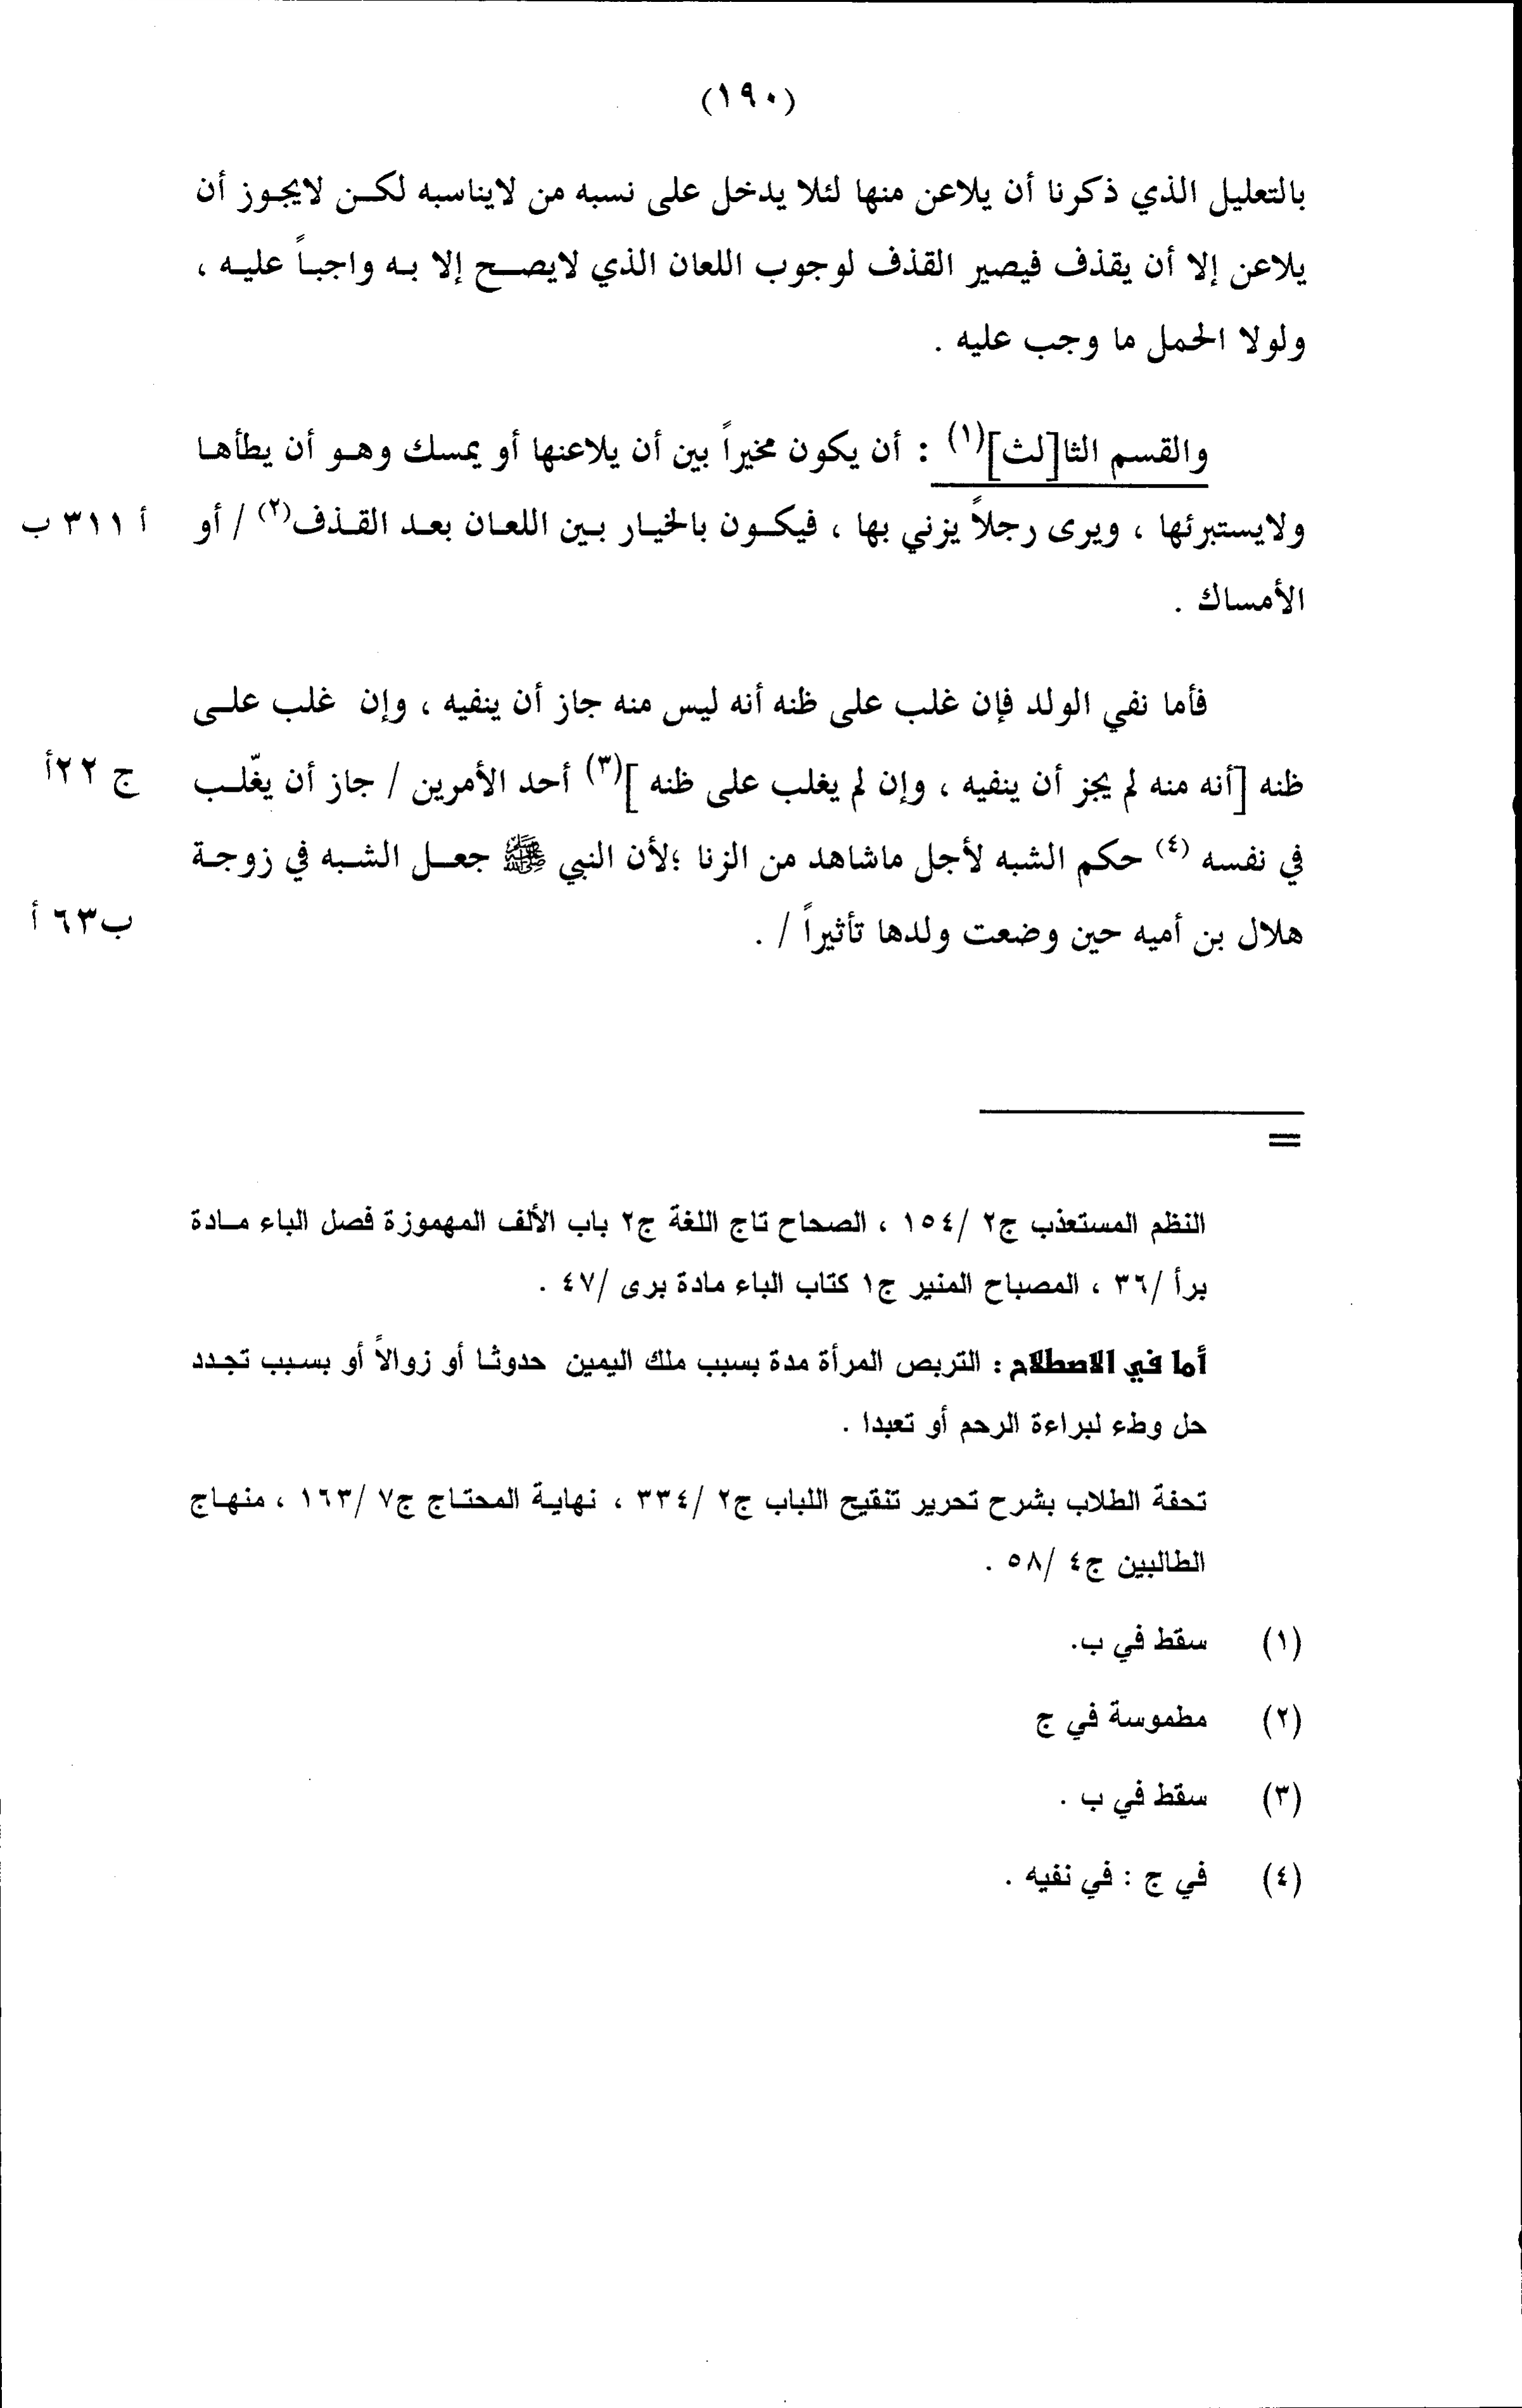 (١٩٠)
بالتعليل الذي ذكرنا أن يلاعن منها لئلا يدخل على نسبه من لايناسبه لكن لايجوز أن
يلاعن إلا أن يقذف فيصير القذف لوجوب اللعان الذي لايصح إلا به واجباً عليه ،
ولولا الحمل ما وجب عليه .
والقسم الثا[لث](١) : أن يكون مخيراً بين أن يلاعنها أو يمسك وهو أن يطأها
ولايستبرئها ، ويرى رجلاً يزني بها ، فيكون بالخيار بين اللعان بعد القذف(٢) / أو أ ٣١١ ب
الأمساك .
فأما نفي الولد فإن غلب على ظنه أنه ليس منه جاز أن ينفيه ، وإن غلب على
ظنه [أنه منه لم يجز أن ينفيه ، وإن لم يغلب على ظنه ](٣) أحد الأمرين / جاز أن يغّلب ج ٢٢أ
في نفسه (٤) حكم الشبه لأجل ماشاهد من الزنا ؛لأن النبي ﷺ جعل الشبه في زوجة
هلال بن أميه حين وضعت ولدها تأثيراً / . ب٦٣ أ
=
النظم المستعذب ج٢ /١٥٤ ، الصحاح تاج اللغة ج٢ باب الألف المهموزة فصل الباء مادة
برأ /٣٦ ، المصباح المنير ج١ كتاب الباء مادة برى /٤٧ .
أما في الاصطلاح : التربص المرأة مدة بسبب ملك اليمين حدوثا أو زوالاً أو بسبب تجدد
حل وطء لبراءة الرحم أو تعبدا .
تحفة الطلاب بشرح تحرير تنقيح اللباب ج٢ /٣٣٤ ، نهاية المحتاج ج٧ /١٦٣ ، منهاج
الطالبين ج٤ /٥٨ .
(١) سقط في ب.
(٢) مطموسة في ج
(٣) سقط في ب .
(٤) في ج : في نفيه .